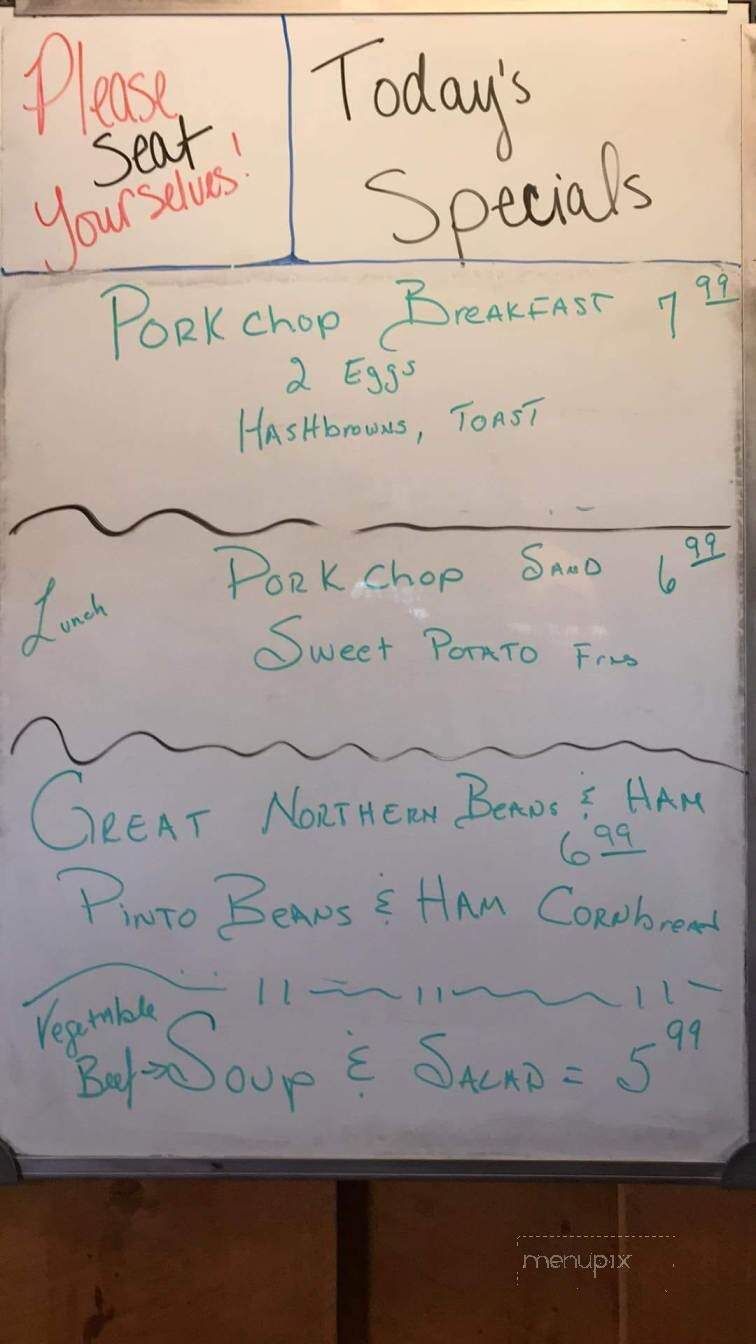 Please
Seat
Yourselves!
Today's
Specials
PORK chop BREAKFAST 7 99
2 Eggs
HASHbrowns, TOAST
Lunch
PORK chop SAND 6 99
Sweet POTATO Fries
GREAT NORTHERN BEANS & HAM
6 99
PINTO BEANS & HAM CORNbread
Vegetable
Beef → Soup & SALAD = 5 99
menupix